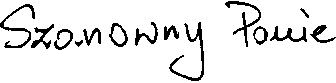 Szanowny Panie